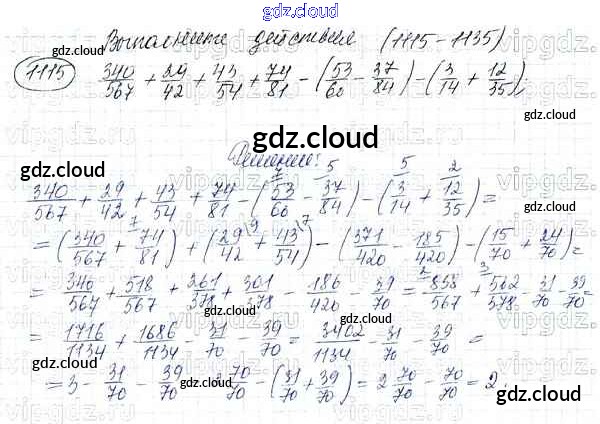 gdz.cloud
Выполните действия (1115-1135)
1115 340/567 + 29/42 + 43/54 + 74/81 - (53/60 - 37/84) - (3/14 + 12/35);
gdz.cloud
Решение:
340/567 + 29/42 + 43/54 + 74/81 - (53/60 - 37/84) - (3/14 + 12/35) =
= (340/567 + 74/81) + (29/42 + 43/54) - (371/420 - 185/420) - (15/70 + 24/70) =
= 340/567 + 518/567 + 261/378 + 301/378 - 186/420 - 39/70 = 858/567 + 562/378 - 31/70 - 39/70 =
= 1716/1134 + 1686/1134 - 31/70 - 39/70 = 3402/1134 - 31/70 - 39/70 =
= 3 - 31/70 - 39/70 = 2 70/70 - (31/70 + 39/70) = 2 70/70 - 70/70 = 2.